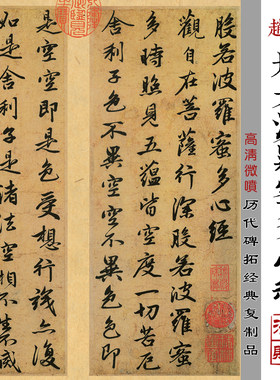 趙
高清微噴
历代碑拓经典复制品
般若波羅蜜多心經
觀自在菩薩行深般若波羅蜜
多時照見五蘊皆空度一切苦厄
舍利子色不異空空不異色色即
是空空即是色受想行識亦復
如是舍利子是諸法空相不生不滅